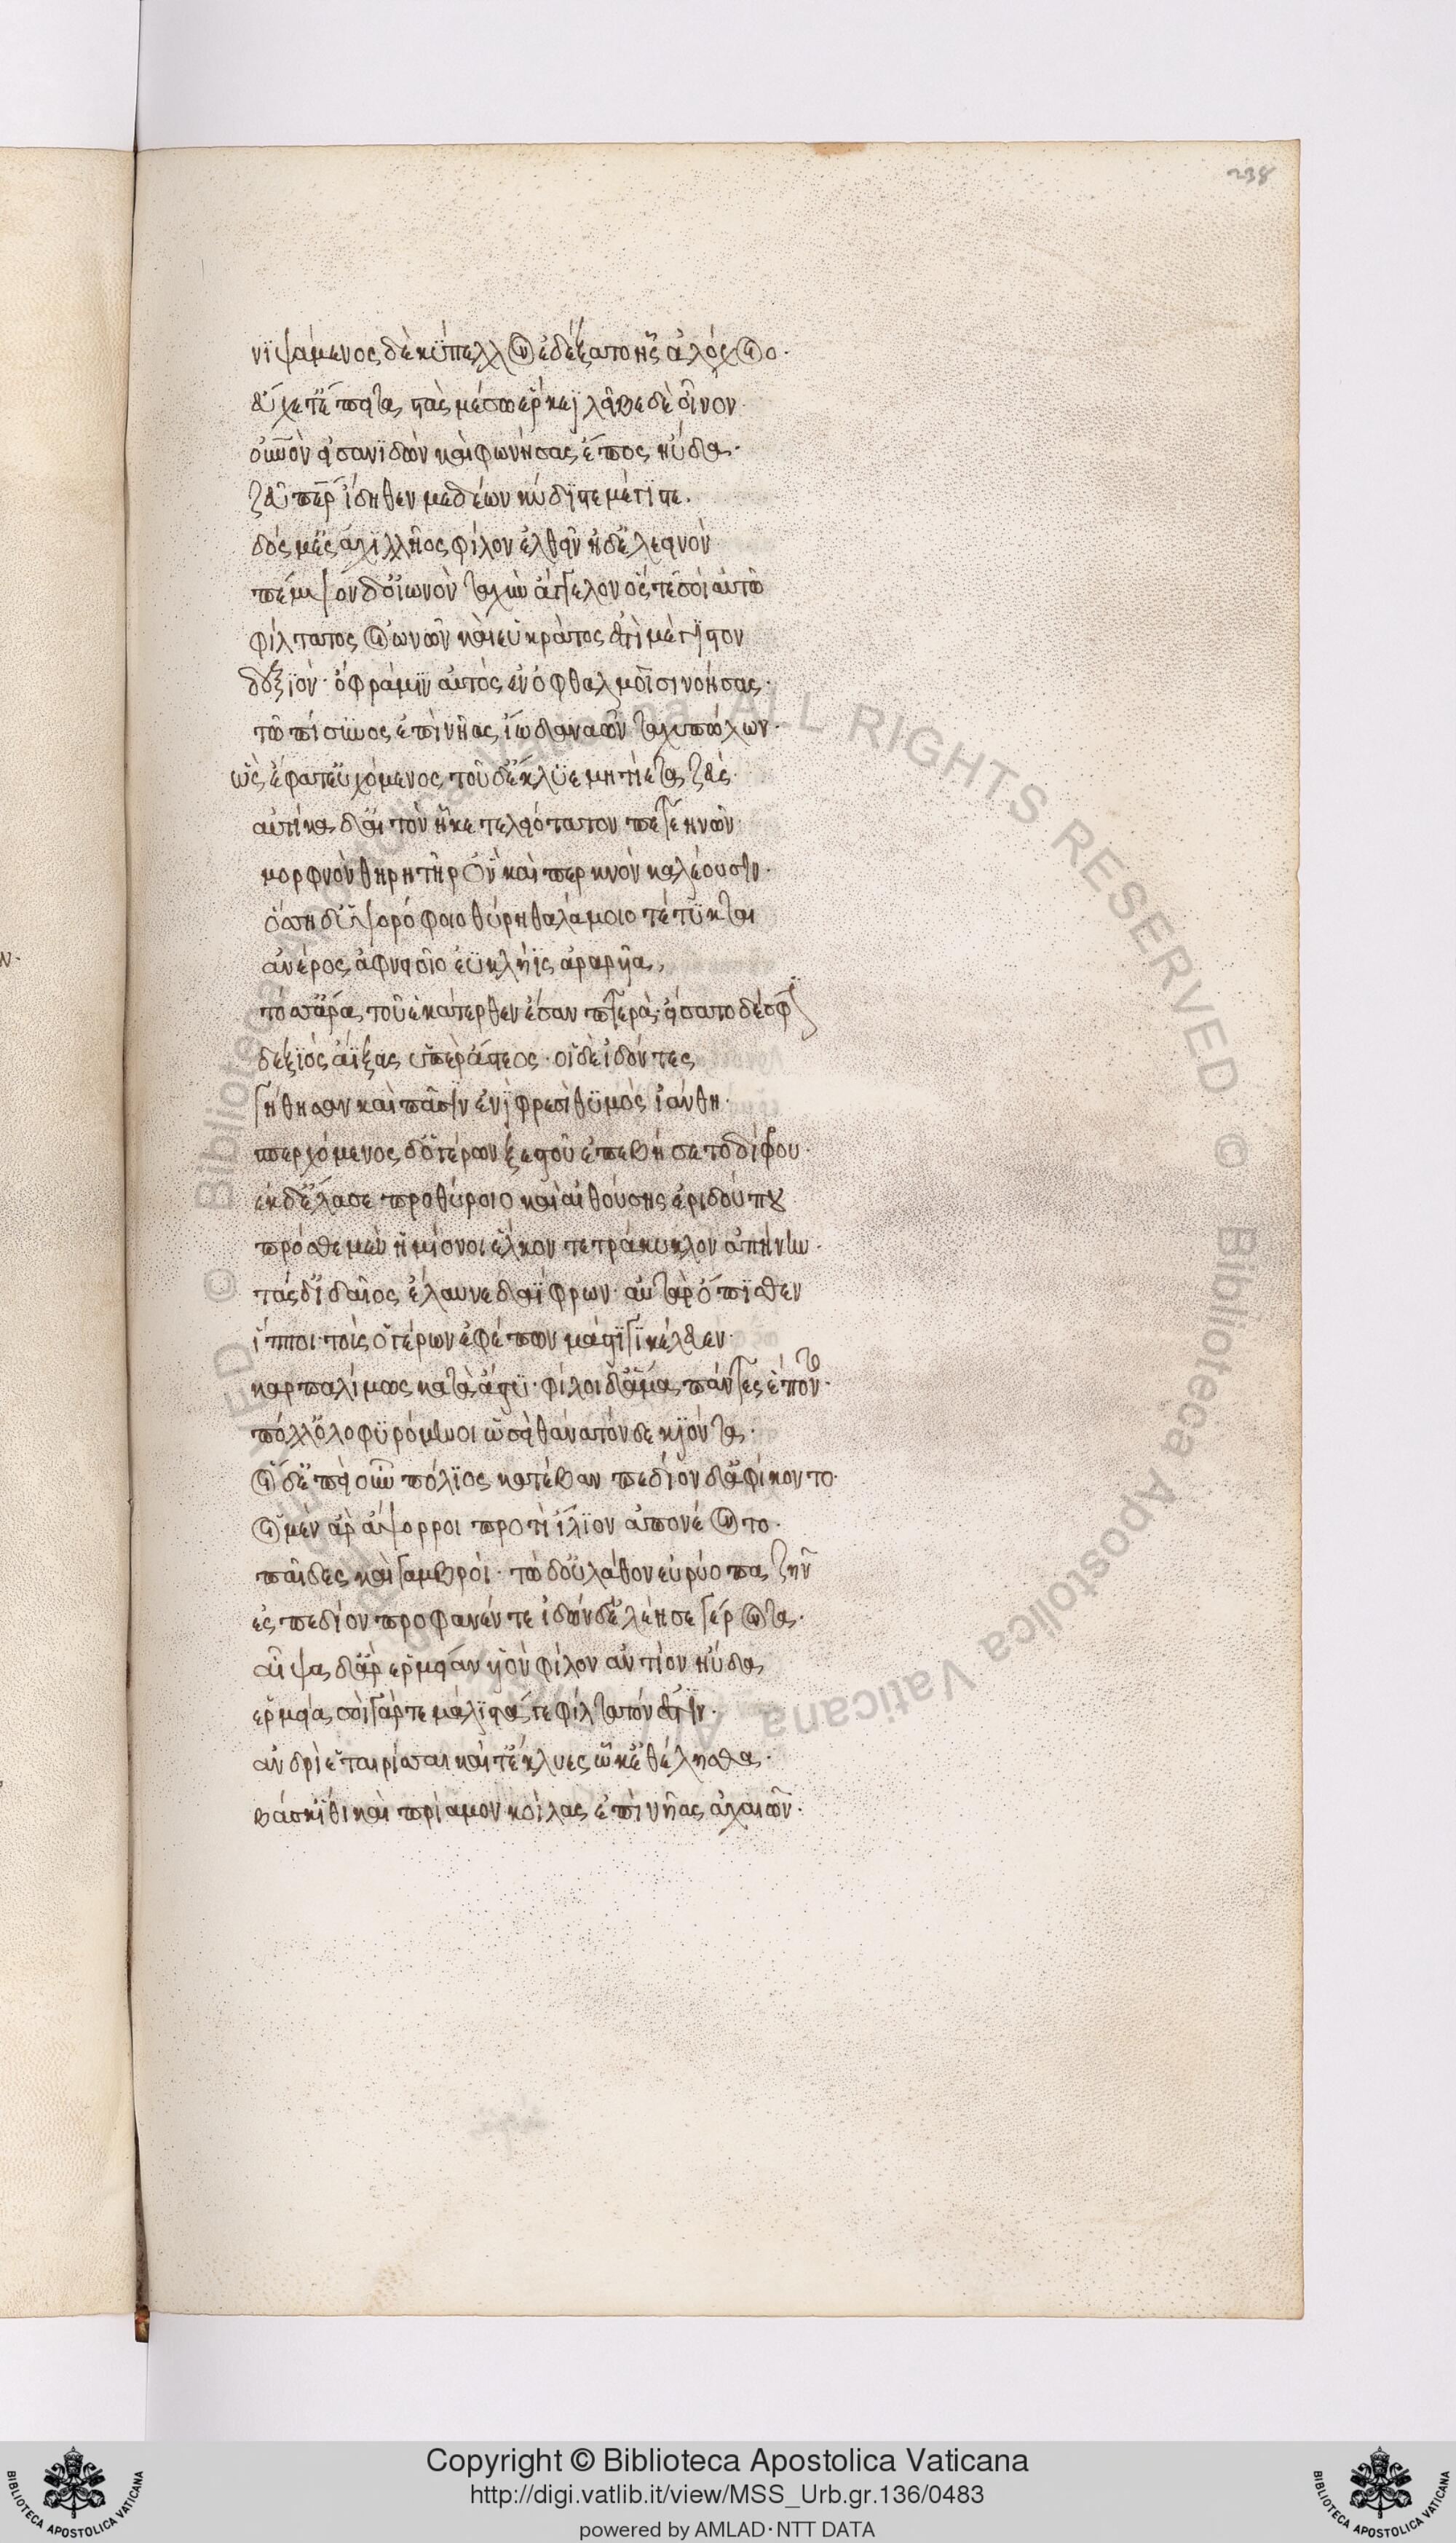 238
νιψάμενος δὲ κύπελλον ἐδέξατο ἧς ἀλόχοιο·
εὔχετ' ἔπειτα στὰς μέσω ἕρκεϊ λεῖβε δὲ οἶνον·
οὐρανὸν εἰσανιδὼν καὶ φωνήσας ἔπος ηὔδα·
ζεῦ πάτερ ἴδηθεν μεδέων κύδιστε μέγιστε.
δός μ' ἐς ἀχιλλῆος φίλον ἐλθεῖν ἠδ' ἐλεεινὸν
πέμψον δ' οἰωνὸν ταχὺν ἄγγελον ὅς τέ σοι αὐτῷ
φίλτατος οἰωνῶν καὶ εὑ κράτος ἐστὶ μέγιστον
δεξιόν· ὄφρά μιν αὐτὸς ἐν ὀφθαλμοῖσι νοήσας·
τῷ πίσυνος ἐπὶ νῆας ἴω δαναῶν ταχυπώλων·
ὣς ἔφατ' εὐχόμενος τοῦ δ' ἔκλυε μητίετα ζεύς·
αὐτίκα δ' αἰετὸν ἧκε τελειότατον πετεηνῶν·
μορφνὸν θηρητῆρ' ὃν καὶ περκνὸν καλέουσιν·
ὅση δ' ὑψορόφοιο θύρη θαλάμοιο τέτυκται
ἀνέρος ἀφνειοῖο ἐϋκληῒς ἀραρυῖα,
τόσσ' ἄρα τοῦ ἑκάτερθεν ἔσαν πτερά· εἴσατο δέ σφι
δεξιὸς ἀΐξας ὑπὲρ ἄστεος· οἱ δὲ ἰδόντες
γήθησαν καὶ πᾶσιν ἐνὶ φρεσὶ θυμὸς ἰάνθη·
σπερχόμενος δ' ὁ γέρων ξεστοῦ ἐπεβήσετο δίφρου·
ἐκ δ' ἔλασε προθύροιο καὶ αἰθούσης ἐριδούπου
πρόσθε μὲν ἡμίονοι ἕλκον τετράκυκλον ἀπήνην·
τὰς ἰδαῖος ἔλαυνε δαΐφρων· αὐτὰρ ὄπισθεν
ἵπποι· τοὺς ὁ γέρων ἐφέπων μάστιγι κέλευεν·
καρπαλίμως κατὰ ἄστυ· φίλοι δ' ἅμα πάντες ἕποντο·
πόλλ' ὀλοφυρόμενοι ὡσεὶ θάνατόνδε κιόντα·
οἱ δ' ἐπεὶ οὖν πόλιος κατέβαν πεδίον δ' ἀφίκοντο·
οἱ μὲν ἄρ' ἄψορροι προτὶ ἴλιον ἀπονέοντο·
παῖδες καὶ γαμβροί· τὼ δ' οὐ λάθον εὐρύοπα ζῆν
ἐς πεδίον προφανέντε ἰδὼν δ' ἐλέησε γέροντα·
αἶψα δ' ἄρ' ἑρμείαν υἱὸν φίλον ἀντίον ηὔδα
ἑρμεία σοὶ γάρ τε μάλιστά γε φίλτατόν ἐστιν·
ἀνδρὶ ἑταιρίσσαι καί τ' ἔκλυες ὧ κ' ἐθέλησθα·
βάσκ' ἴθι καὶ πρίαμον κοίλας ἐπὶ νῆας ἀχαιῶν·
Copyright © Biblioteca Apostolica Vaticana
http://digi.vatlib.it/view/MSS_Urb.gr.136/0483
powered by AMLAD·NTT DATA